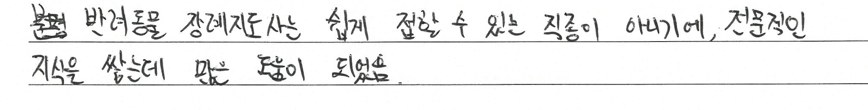 반려동물 장례지도사는 쉽게 접할 수 있는 직종이 아니기에, 전문적인
지식을 쌓는데 많은 도움이 되었음.